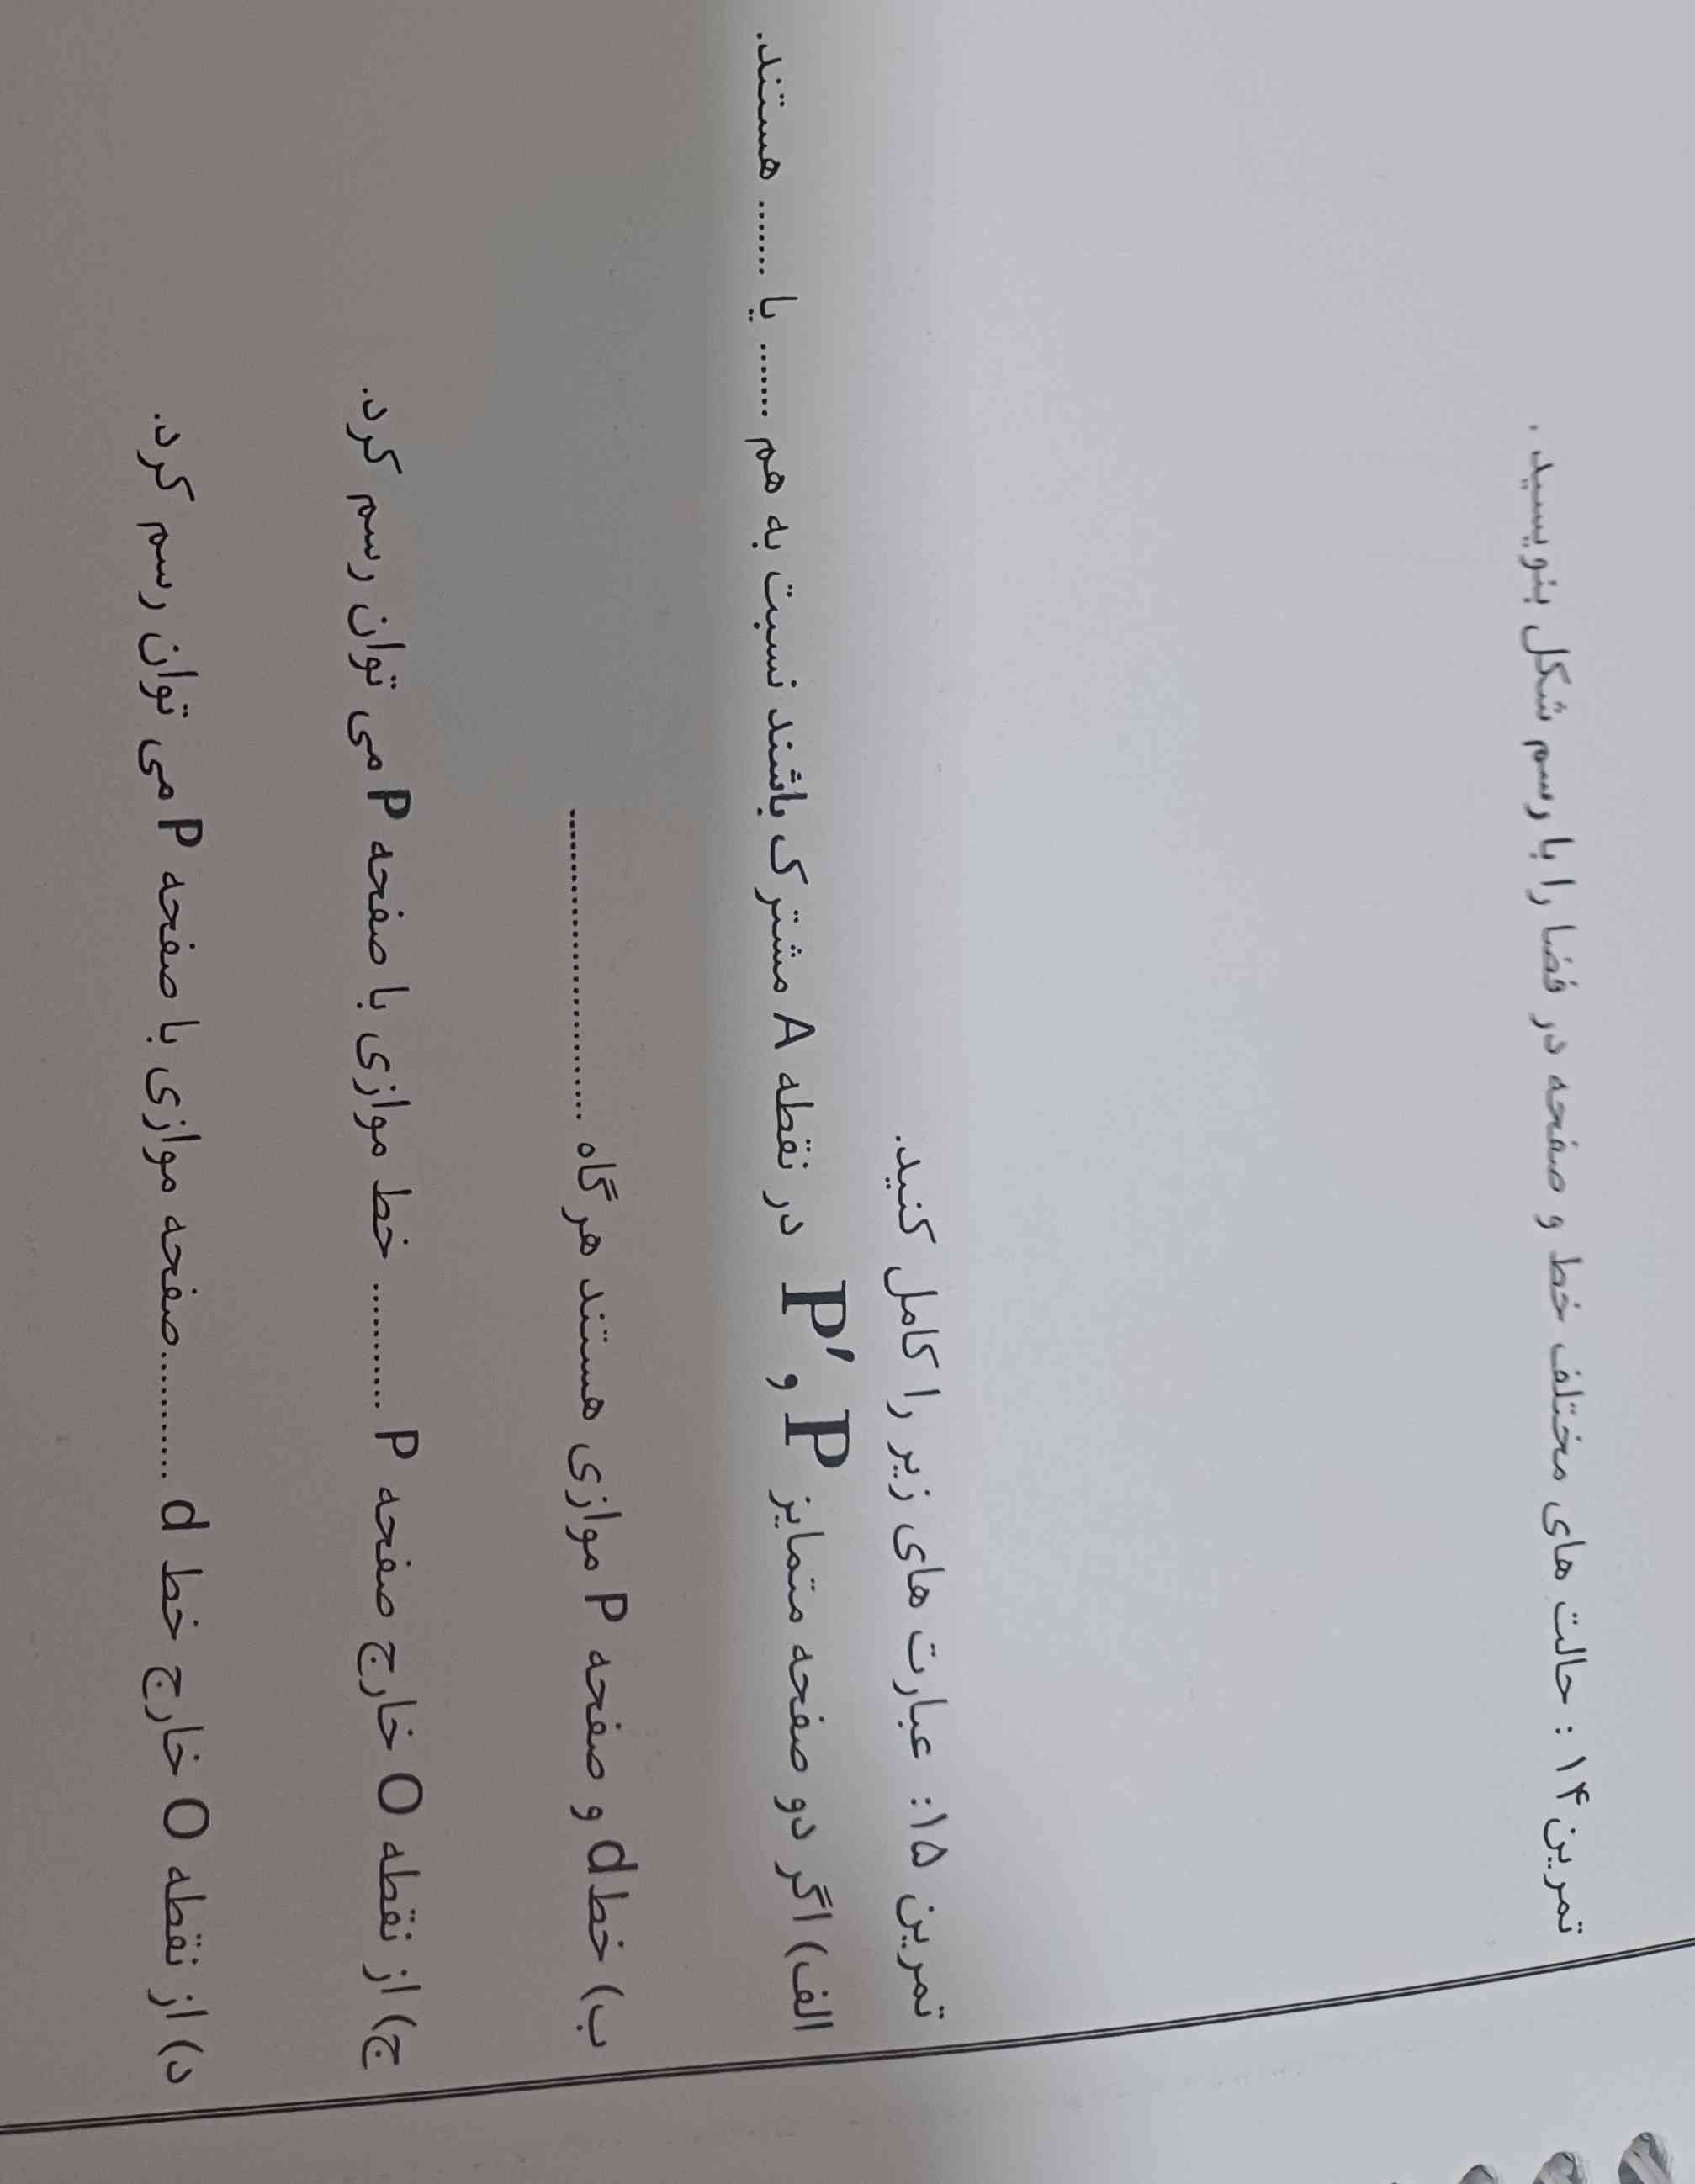 تمرین۱۴ : حالت های مختلف خط و صفحه در فضا را با رسم شکل بنویسید .
تمرین ۱۵: عبارت های زیر را کامل کنید.
الف) اگر دو صفحه متمایز P و P′ در نقطه A مشترک باشند نسبت به هم ....... یا ....... هستند.
ب) خط d و صفحه P موازی هستند هر گاه .............................
ج) از نقطه O خارج صفحه P ........... خط موازی با صفحه P می توان رسم کرد.
د) از نقطه O خارج خط d ...........صفحه موازی با صفحه P می توان رسم کرد.